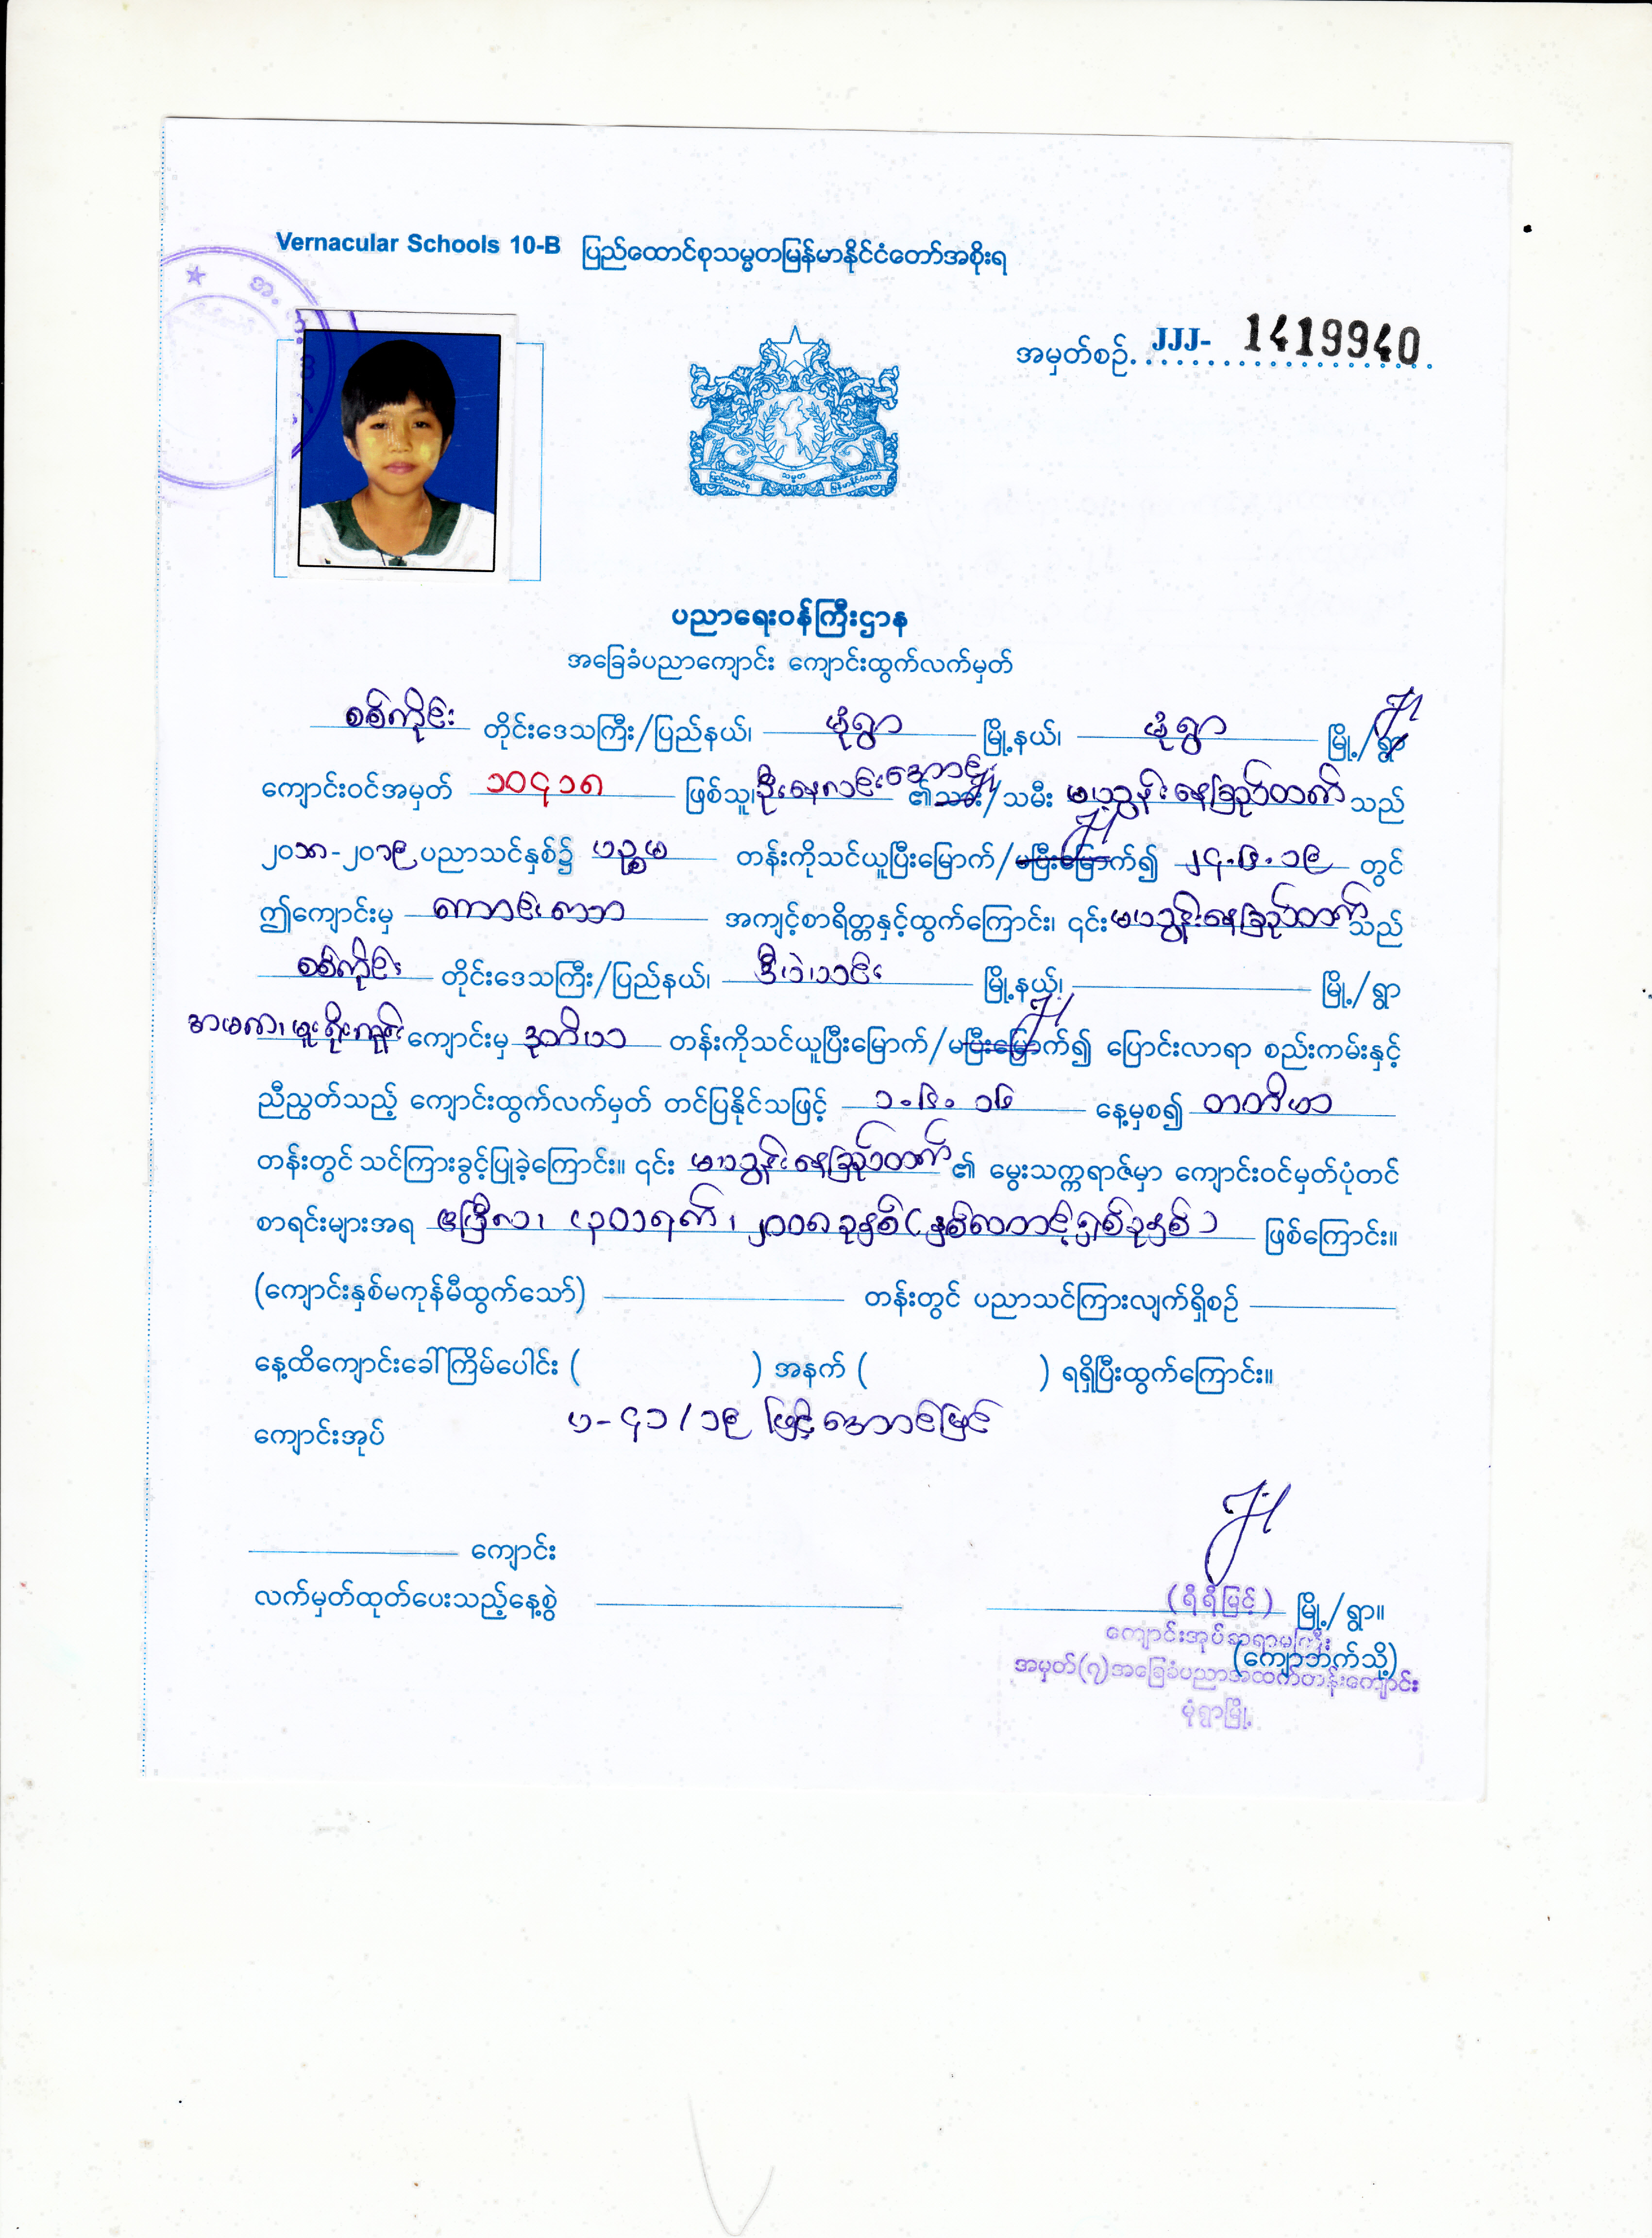 Vernacular Schools 10-B ပြည်ထောင်စုသမ္မတမြန်မာနိုင်ငံတော်အစိုးရ
အမှတ်စဉ်. JJJ- 1419940
ပြည်ထောင်စု သမ္မတ မြန်မာနိုင်ငံတော်
ပညာရေးဝန်ကြီးဌာန
အခြေခံပညာကျောင်း ကျောင်းထွက်လက်မှတ်
စစ်ကိုင်း တိုင်းဒေသကြီး/ပြည်နယ်၊ မုံရွာ မြို့နယ်၊ မုံရွာ မြို့/ရွာ
ကျောင်းဝင်အမှတ် ၁၀၄၁၈ ဖြစ်သူ၊ ဦးနေလင်းအောင် ၏သား/သမီး မသွန်းနေခြည်ထက် သည်
၂၀၁၈-၂၀၁၉ ပညာသင်နှစ်၌ ပဉ္စမ တန်းကိုသင်ယူပြီးမြောက်/မပြီးမြောက်၍ ၂၄.၆.၁၉ တွင်
ဤကျောင်းမှ ကောင်းသော အကျင့်စာရိတ္တနှင့်ထွက်ကြောင်း၊ ၎င်း မသွန်းနေခြည်ထက် သည်
စစ်ကိုင်း တိုင်းဒေသကြီး/ပြည်နယ်၊ ဒီပဲယင်း မြို့နယ်၊ မြို့/ရွာ
အမက၊ ကျောင်းမှ ဒုတိယ တန်းကိုသင်ယူပြီးမြောက်/မပြီးမြောက်၍ ပြောင်းလာရာ စည်းကမ်းနှင့်
ညီညွတ်သည့် ကျောင်းထွက်လက်မှတ် တင်ပြနိုင်သဖြင့် ၁.၆.၁၆ နေ့မှစ၍ တတိယ
တန်းတွင် သင်ကြားခွင့်ပြုခဲ့ကြောင်း။ ၎င်း မသွန်းနေခြည်ထက် ၏ မွေးသက္ကရာဇ်မှာ ကျောင်းဝင်မှတ်ပုံတင်
စာရင်းများအရ ဧပြီလ၊ (၃၀)ရက်၊ ၂၀၀၈ ခုနှစ် (နှစ်ထောင့်ရှစ်ခုနှစ်) ဖြစ်ကြောင်း။
(ကျောင်းနှစ်မကုန်မီထွက်သော်) တန်းတွင် ပညာသင်ကြားလျက်ရှိစဉ်
နေ့ထိကျောင်းခေါ်ကြိမ်ပေါင်း ( ) အနက် ( ) ရရှိပြီးထွက်ကြောင်း။
ကျောင်းအုပ် ပ-၄၁/၁၉ ဖြင့်အောင်မြင်
ကျောင်း
လက်မှတ်ထုတ်ပေးသည့်နေ့စွဲ (ရီရီမြင့်) မြို့/ရွာ။
ကျောင်းအုပ်ဆရာမကြီး
(ကျောဘက်သို့)
အမှတ်(၇)အခြေခံပညာအထက်တန်းကျောင်း
မုံရွာမြို့